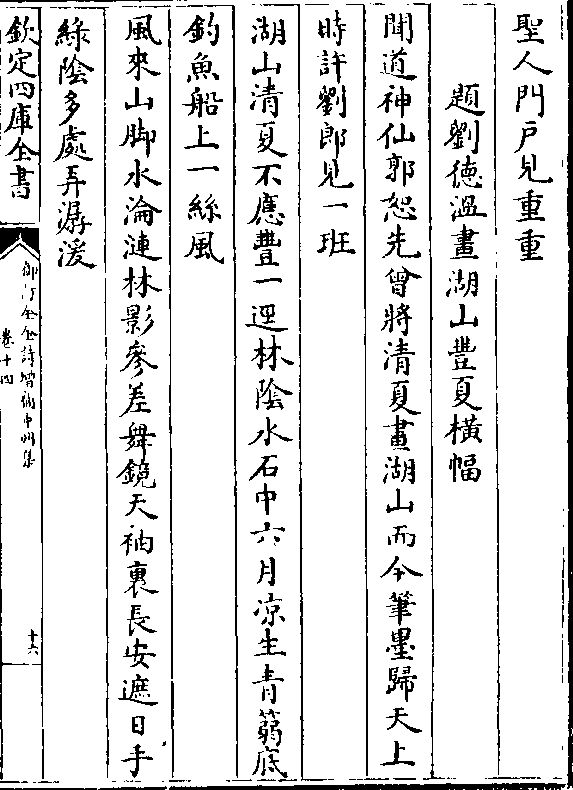 聖人門戶見重重
題劉德溫畫湖山豐夏橫幅
聞道神仙郭恕先曾將清夏畫湖山而今筆墨歸天上
時許劉郎見一班
湖山清夏不應豐一逕林陰水石中六月凉生青蒻底
釣魚船上一絲風
風來山脚水淪漣林影參差舞鏡天袖裏長安遮日手
綠陰多處弄潺湲
欽定四庫全書
御訂全金詩增補中州集
卷十四
十六